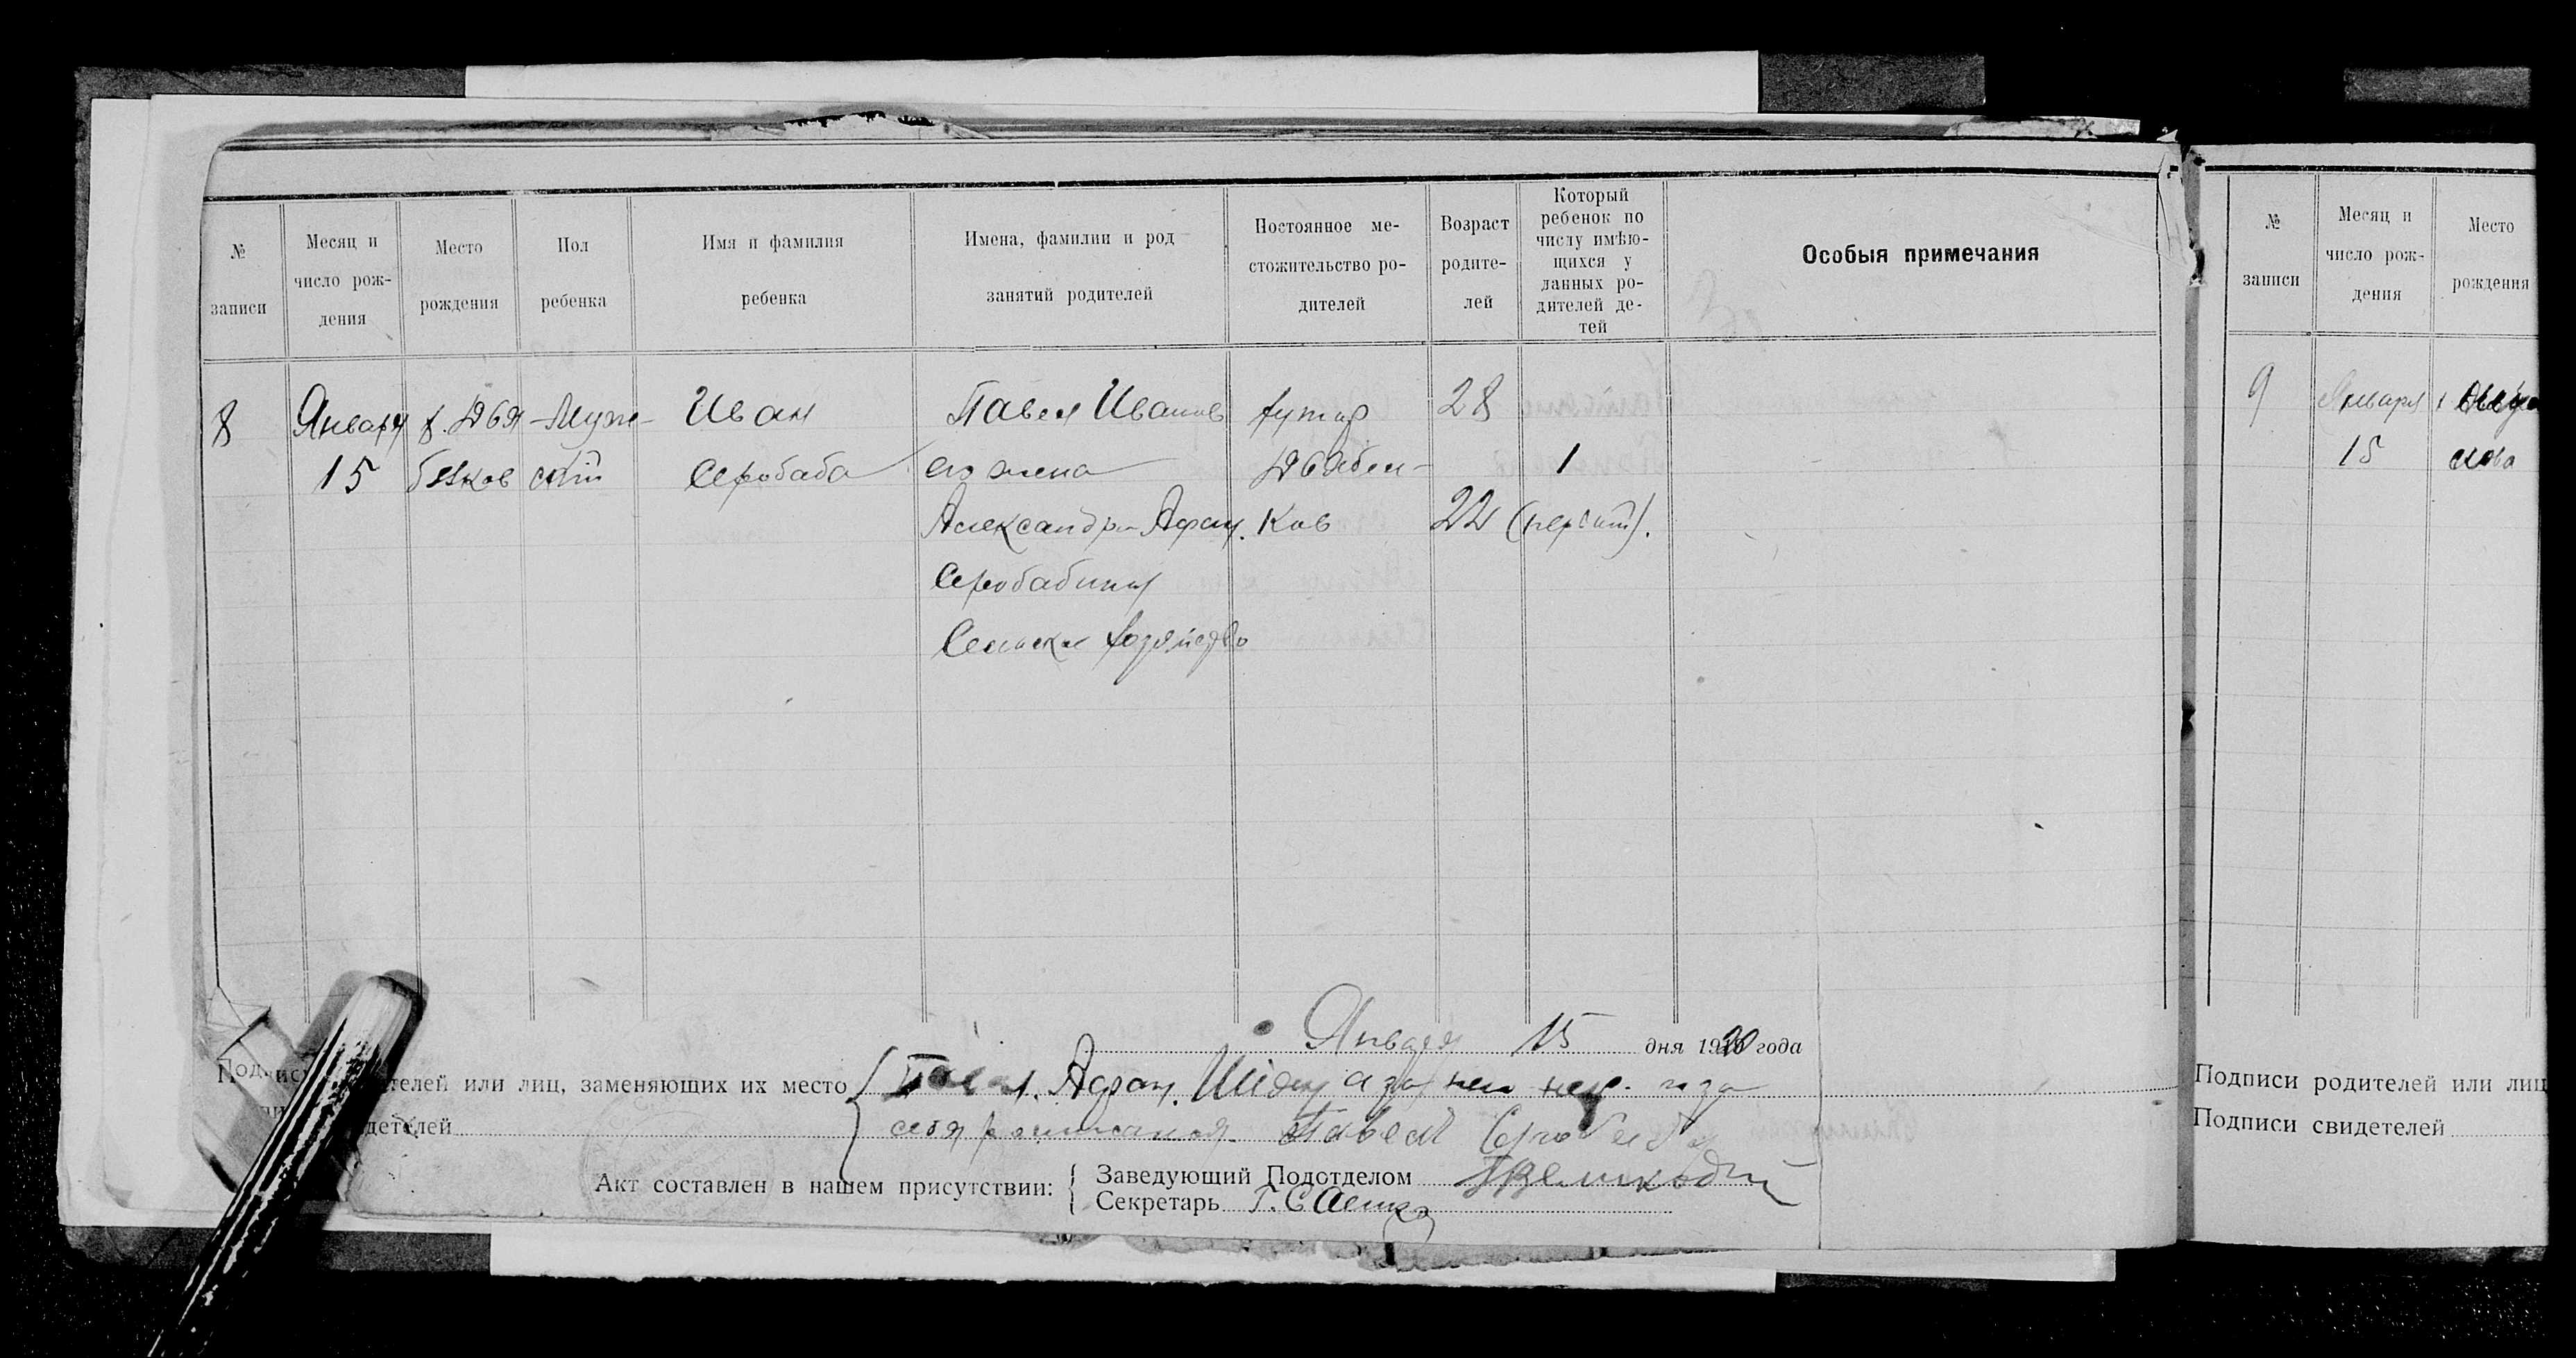 № записи
Месяц и число рождения
Место рождения
Пол ребенка
Имя и фамилия ребенка
Имена, фамилии и род занятий родителей
Постоянное местожительство родителей
Возраст родителей
Который ребенок по числу имѣющихся у данных родителей детей
Особыя примечания
8
Января
15
Муж-
ской
Иван
Серобаба
Павел Иванов
его жена
Александра Афан.
Серобабины
Сельское хозяйство
хутор
ков
28
22
1
(первый).
Января 15 дня 1920 года
телей или лиц, заменяющих их место
детелей
Афан.
себя росписался Павел Серобаба
Акт составлен в нашем присутствии:
Заведующий Подотделом
Секретарь
№ записи
Месяц и число рождения
Место рождения
9
Января
15
Подписи родителей или лиц
Подписи свидетелей